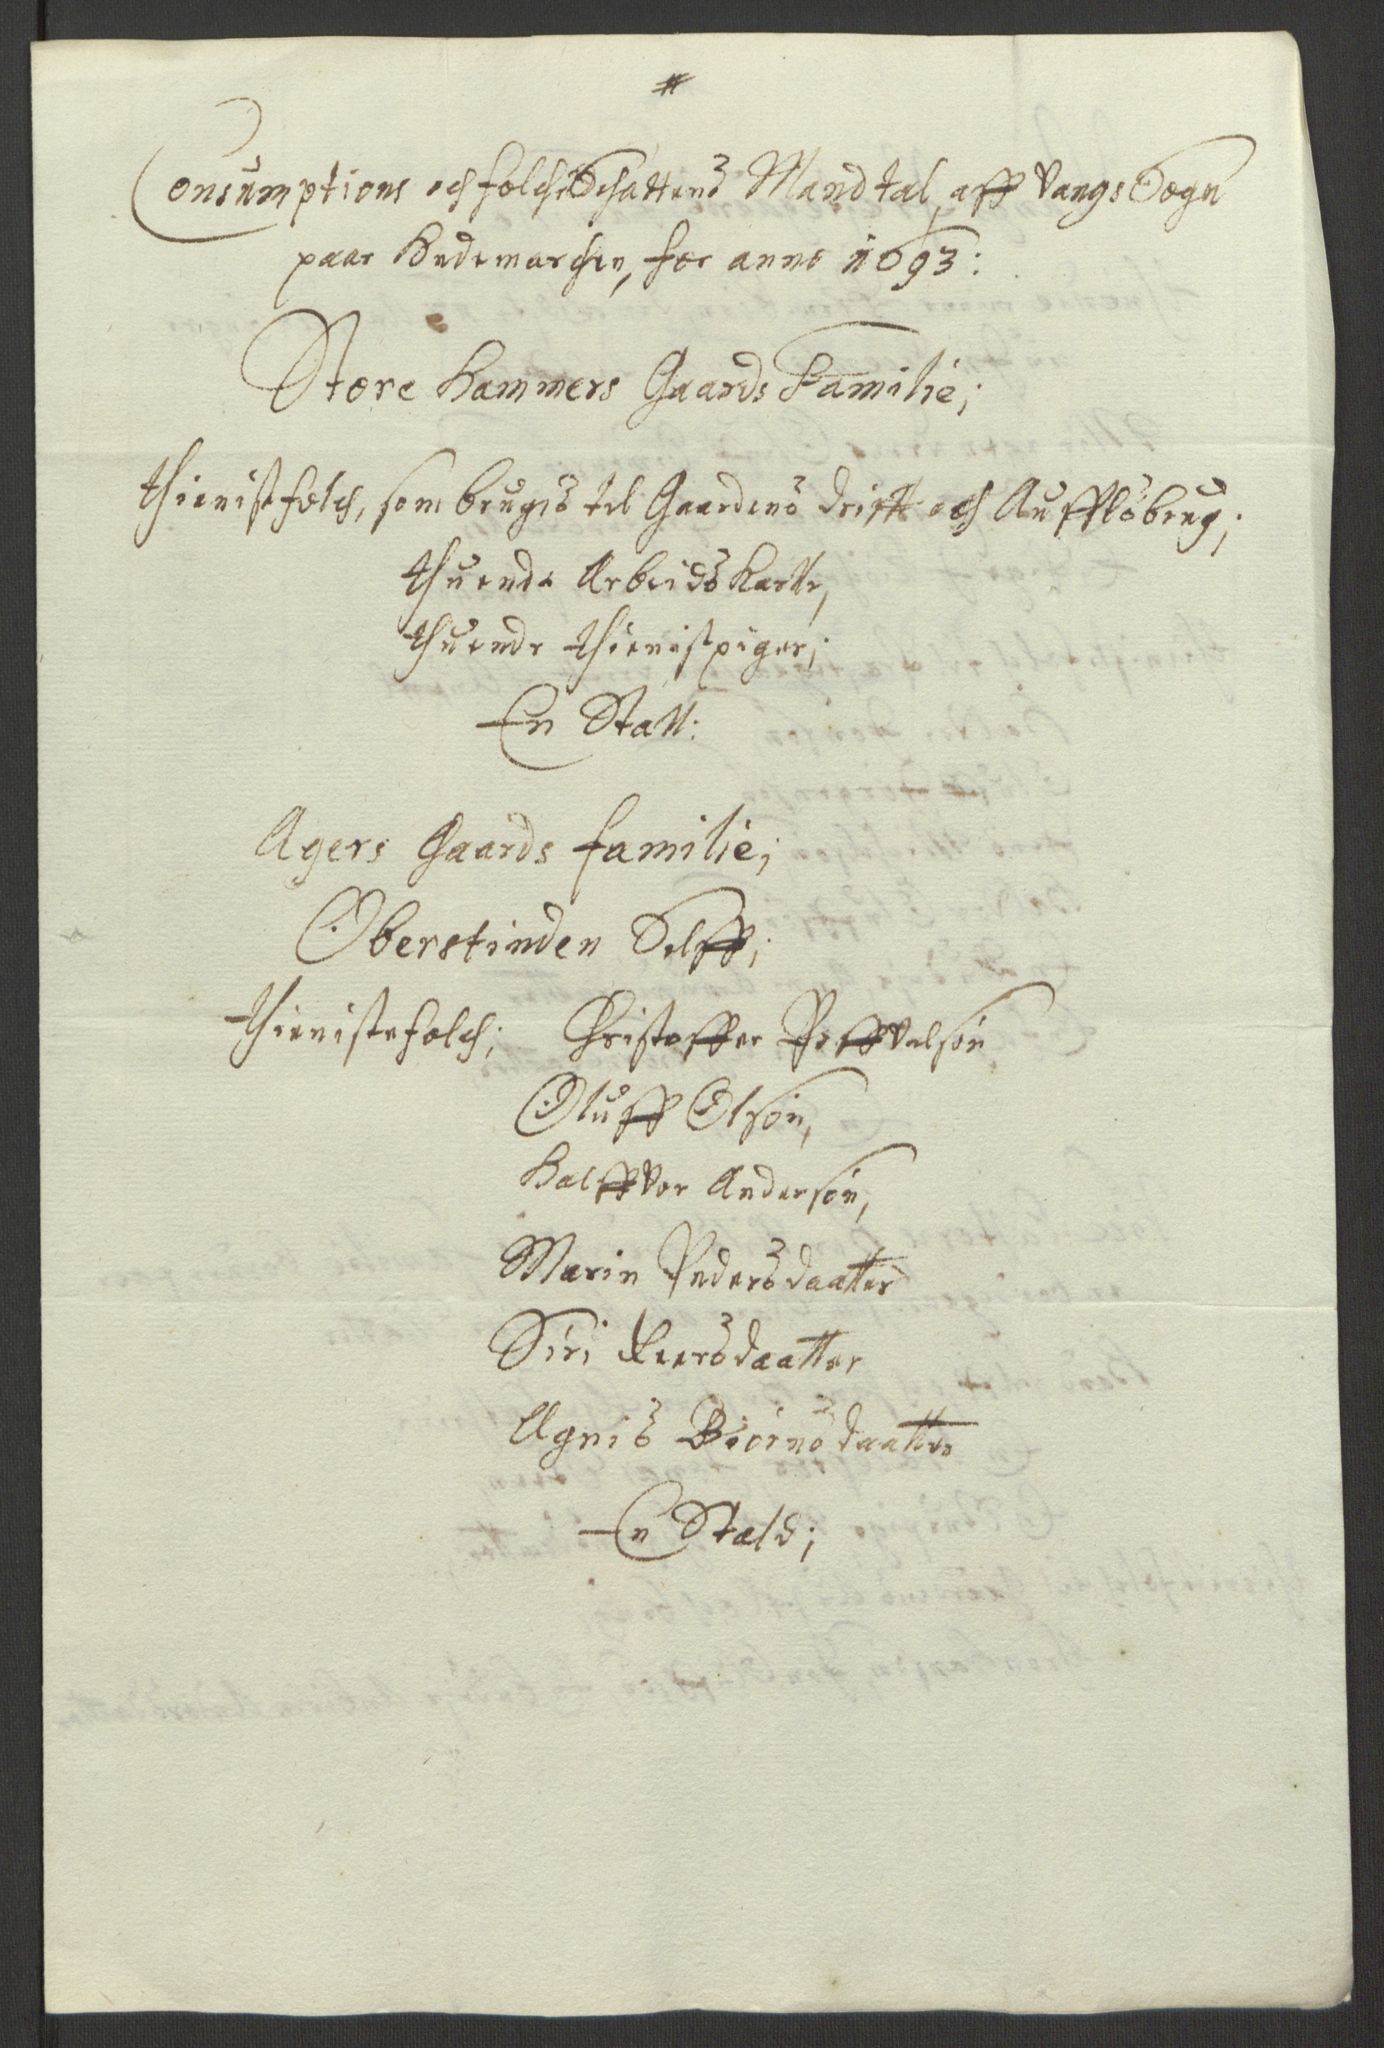 #
Consumptions och folcheSchattens Mandtal, aff Vangs Sogn
paar Hedemarchen, for anno 1693:
Store Hammers Gaards Familie;
thienistfolch, som brugis til Gaardens drifft och Auffls brug;
thuende Arbeids Karlle,
thuende thienistpiger;
En Stall:
Agers Gaards familie;
Oberstinden Selff;
thienistefolch; Christoffer Poffvelsøn
Oluff Olsøn,
Halffvor Andersøn,
Marin Pedersdaatter
Siri Peersdaatter
Agnis Biørnsdaatter
En Stald;